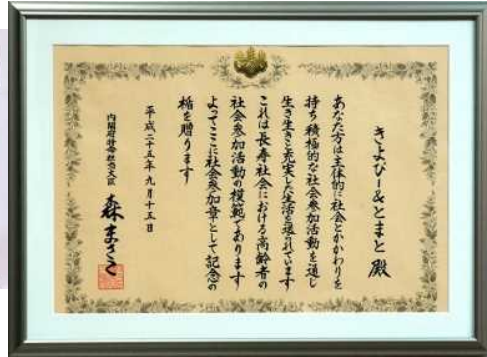 きよぴー&とまと 殿
あなた方は主体的に社会とかかわりを
持ち積極的な社会参加活動を通し
生き生きと充実した生活を送られています
これは長寿社会における高齢者の
社会参加活動の模範であります
よってここに社会参加章として記念の
楯を贈ります
平成二十五年九月十五日
内閣府特命担当大臣 森まさこ